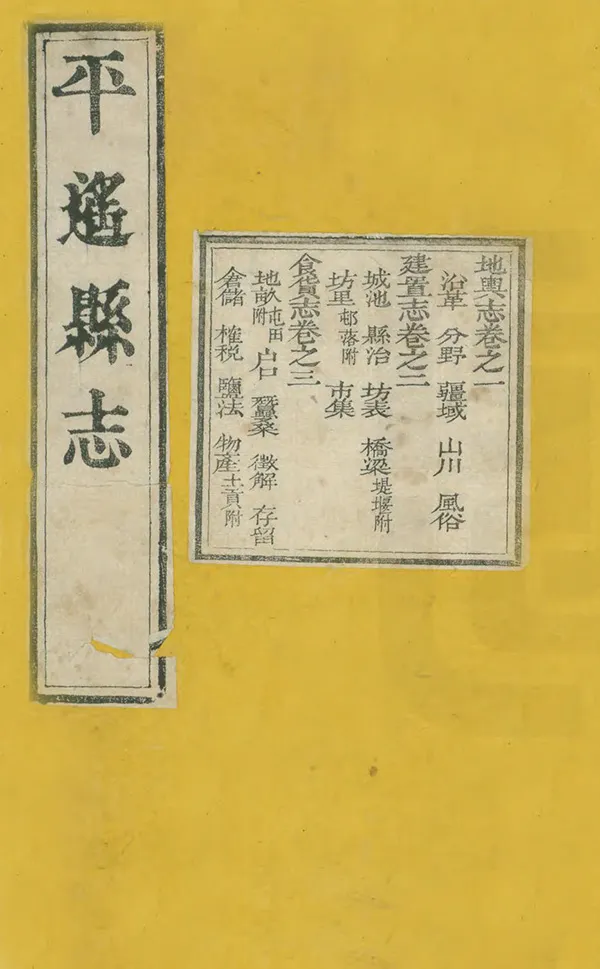 平遙縣志
地輿志卷之一
沿革 分野 疆域 山川 風俗
建置志卷之二
城池 縣治 坊表 橋梁堤堰附
坊里邨落附 市集
食貨志卷之三
地畝屯田附 户口 蠶桑 徵解 存留
倉儲 榷税 鹽法 物產土貢附